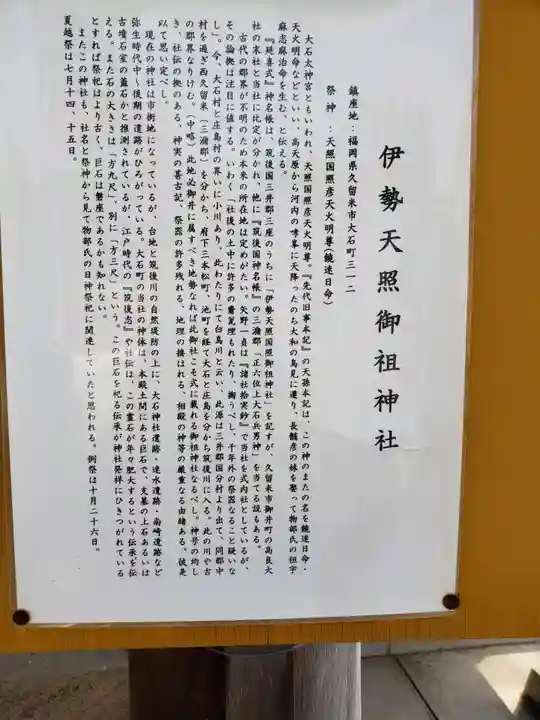 伊勢天照御祖神社
鎮座地：福岡県久留米市大石町三一二
祭神：天照国照彦天火明尊（饒速日命）
大石太神宮ともいわれ、天照国照彦天火明尊。『先代旧事本記』の天孫本記は、この神のまたの名を饒速日命・
天火明命などといい、高天原から河内の哮峯に天降ったのち大和の鳥見に遷り、長髄彦の妹を娶って物部氏の祖宇
麻志麻治命を生む、と伝える。
『延喜式』神名帳は、筑後国三井郡三座のうちに「伊勢天照御祖神社」を記すが、久留米市御井町の高良大
社の末社と当社に比定が分かれ、他に『筑後国神名帳』の三瀦郡「正六位上大石兵男神」を当てる説もある。
古代の郡界が不明のため本来の所在地は定めがたい。矢野一貞は『諸社拾実鈔』で当社を式内社としているが、
その論拠は注目に値する。いわく「社後の土中に許多の甕瓮埋もれたり、掬うべし、千年外の祭器なること疑いな
し」。今、大石村と庄島村の界いに小川あり、此わたりにて白鳥川と云い、此源は三井郡国分村より出て、同郡中
村を過ぎ西久留米（三瀦郡）を分かち、府下三本松町、池町を経て大石と庄島を分から筑後川に入る。此の川や古
の郡界なりけむ。（中略）此地必御井に属すべき地勢なれば此御社こそ式に載れる御祖神社なるべし。神号の均し
き、社伝の拠のある、神実の甚古記、祭器の許多残れる、地理の接はれる、相殿の神等の厳重なる由緒ある。彼是
以て思い定べし。
現在の神社は市街地になっているが、台地と筑後川の自然堤防の上に、大石神社遺跡・速水遺跡・南崎遺跡など
弥生時代中～後期の遺跡がひろがっている。大石町の当社の神体は、本殿土間にある巨石で、支墓の上石あるいは
古墳石室の蓋石かと推測されているが、江戸時代の『筑後志』や社伝は、この霊石が年々肥大するという伝承を伝
える。また石の大きさは「方九尺」、別に「方三尺」という。この巨石を祀る伝承が神社発祥にひきつがれている
とすれば祭祀はより古く、巨石は磐座であるかも知れない。
またこの神社も、社名と祭神から見て物部氏の日神祭祀に関連していたと思われる。例祭は十月二十六日。
夏越祭は七月十四、十五日。